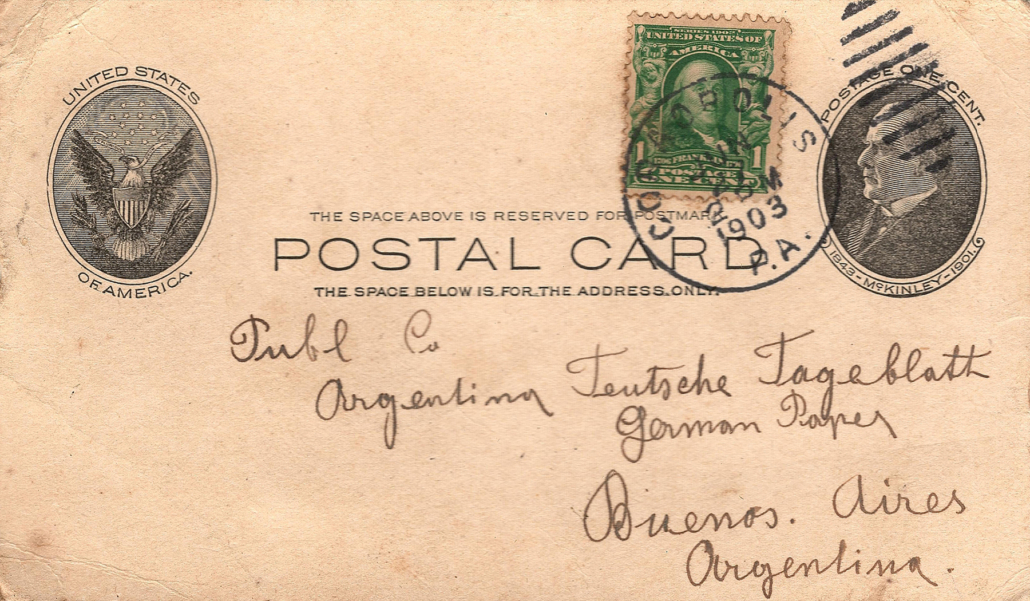 SERIES 1902
UNITED STATES OF
AMERICA
1 FRANKLIN 1
POSTAGE
ONE CENT
UNITED STATES
OF AMERICA.
POSTAGE ONE CENT.
1843-McKINLEY-1901.
CORAOPOLIS
1903
P.A.
THE SPACE ABOVE IS RESERVED FOR POSTMARK
POSTAL CARD
THE SPACE BELOW IS FOR THE ADDRESS ONLY.
Publ Co
Argentina Teutsche Tageblatt
German Paper
Buenos. Aires
Argentina.